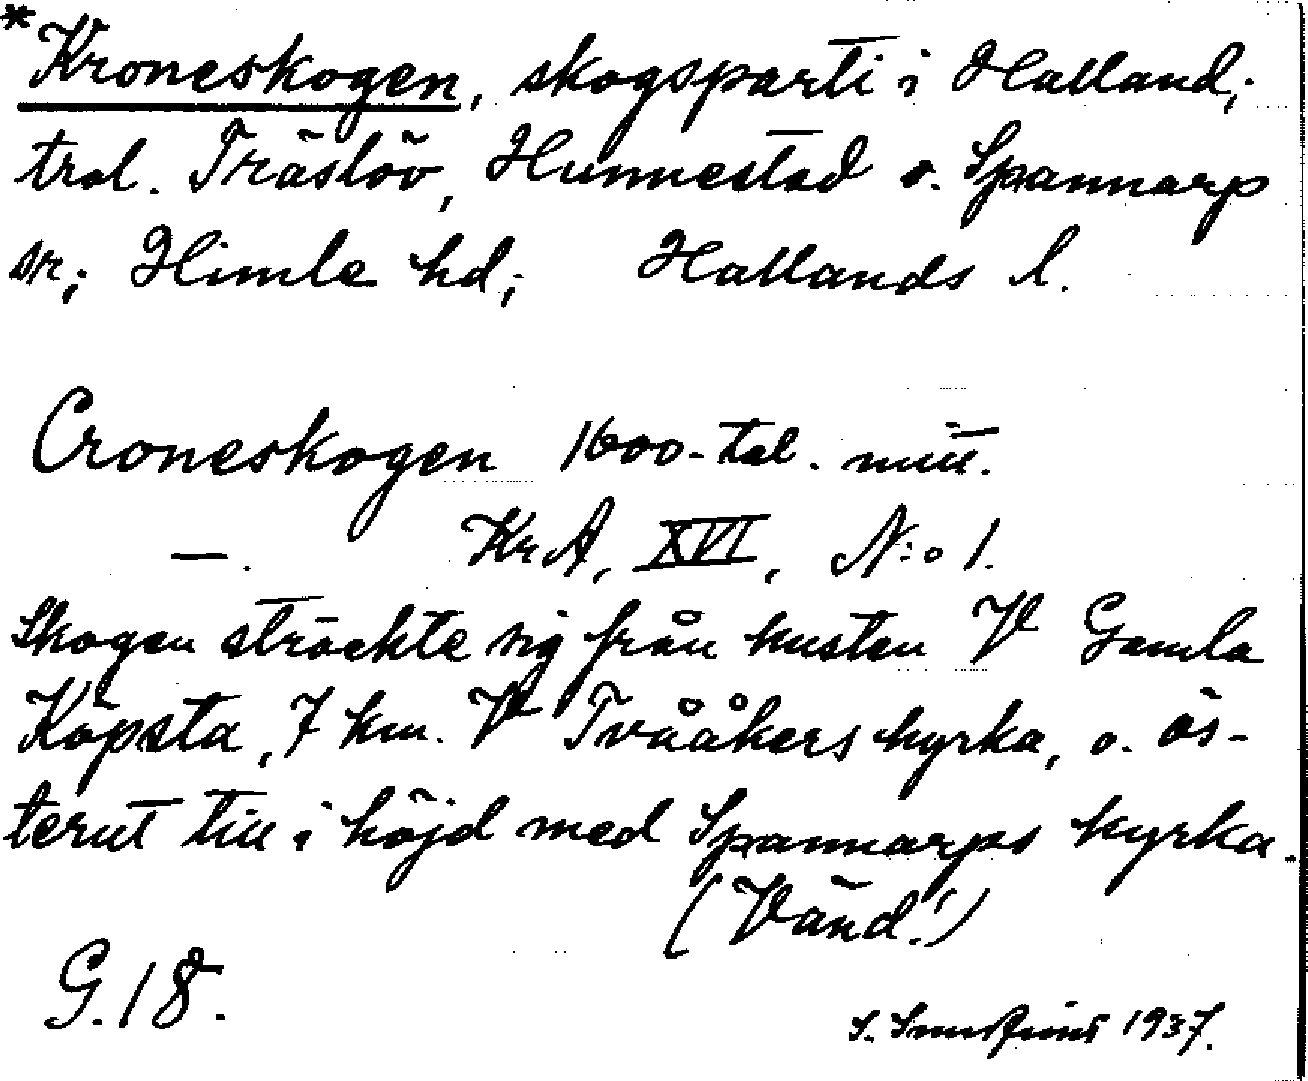 *Kroneskogen, skogsparti i Halland;
trol. Träslöv, Hunnestad o. Spannarp
sn; Himle hd; Hallands l.
Croneskogen 1600-tal. mitt.
—. KrA, XVI, N:o 1.
Skogen sträckte sig från kusten V Gamla
Köpsta, 7 km. V Tvååkers kyrka, o. ös-
terut till i höjd med Spannarps kyrka.
(Vänd!)
G.18.
S. 1937.